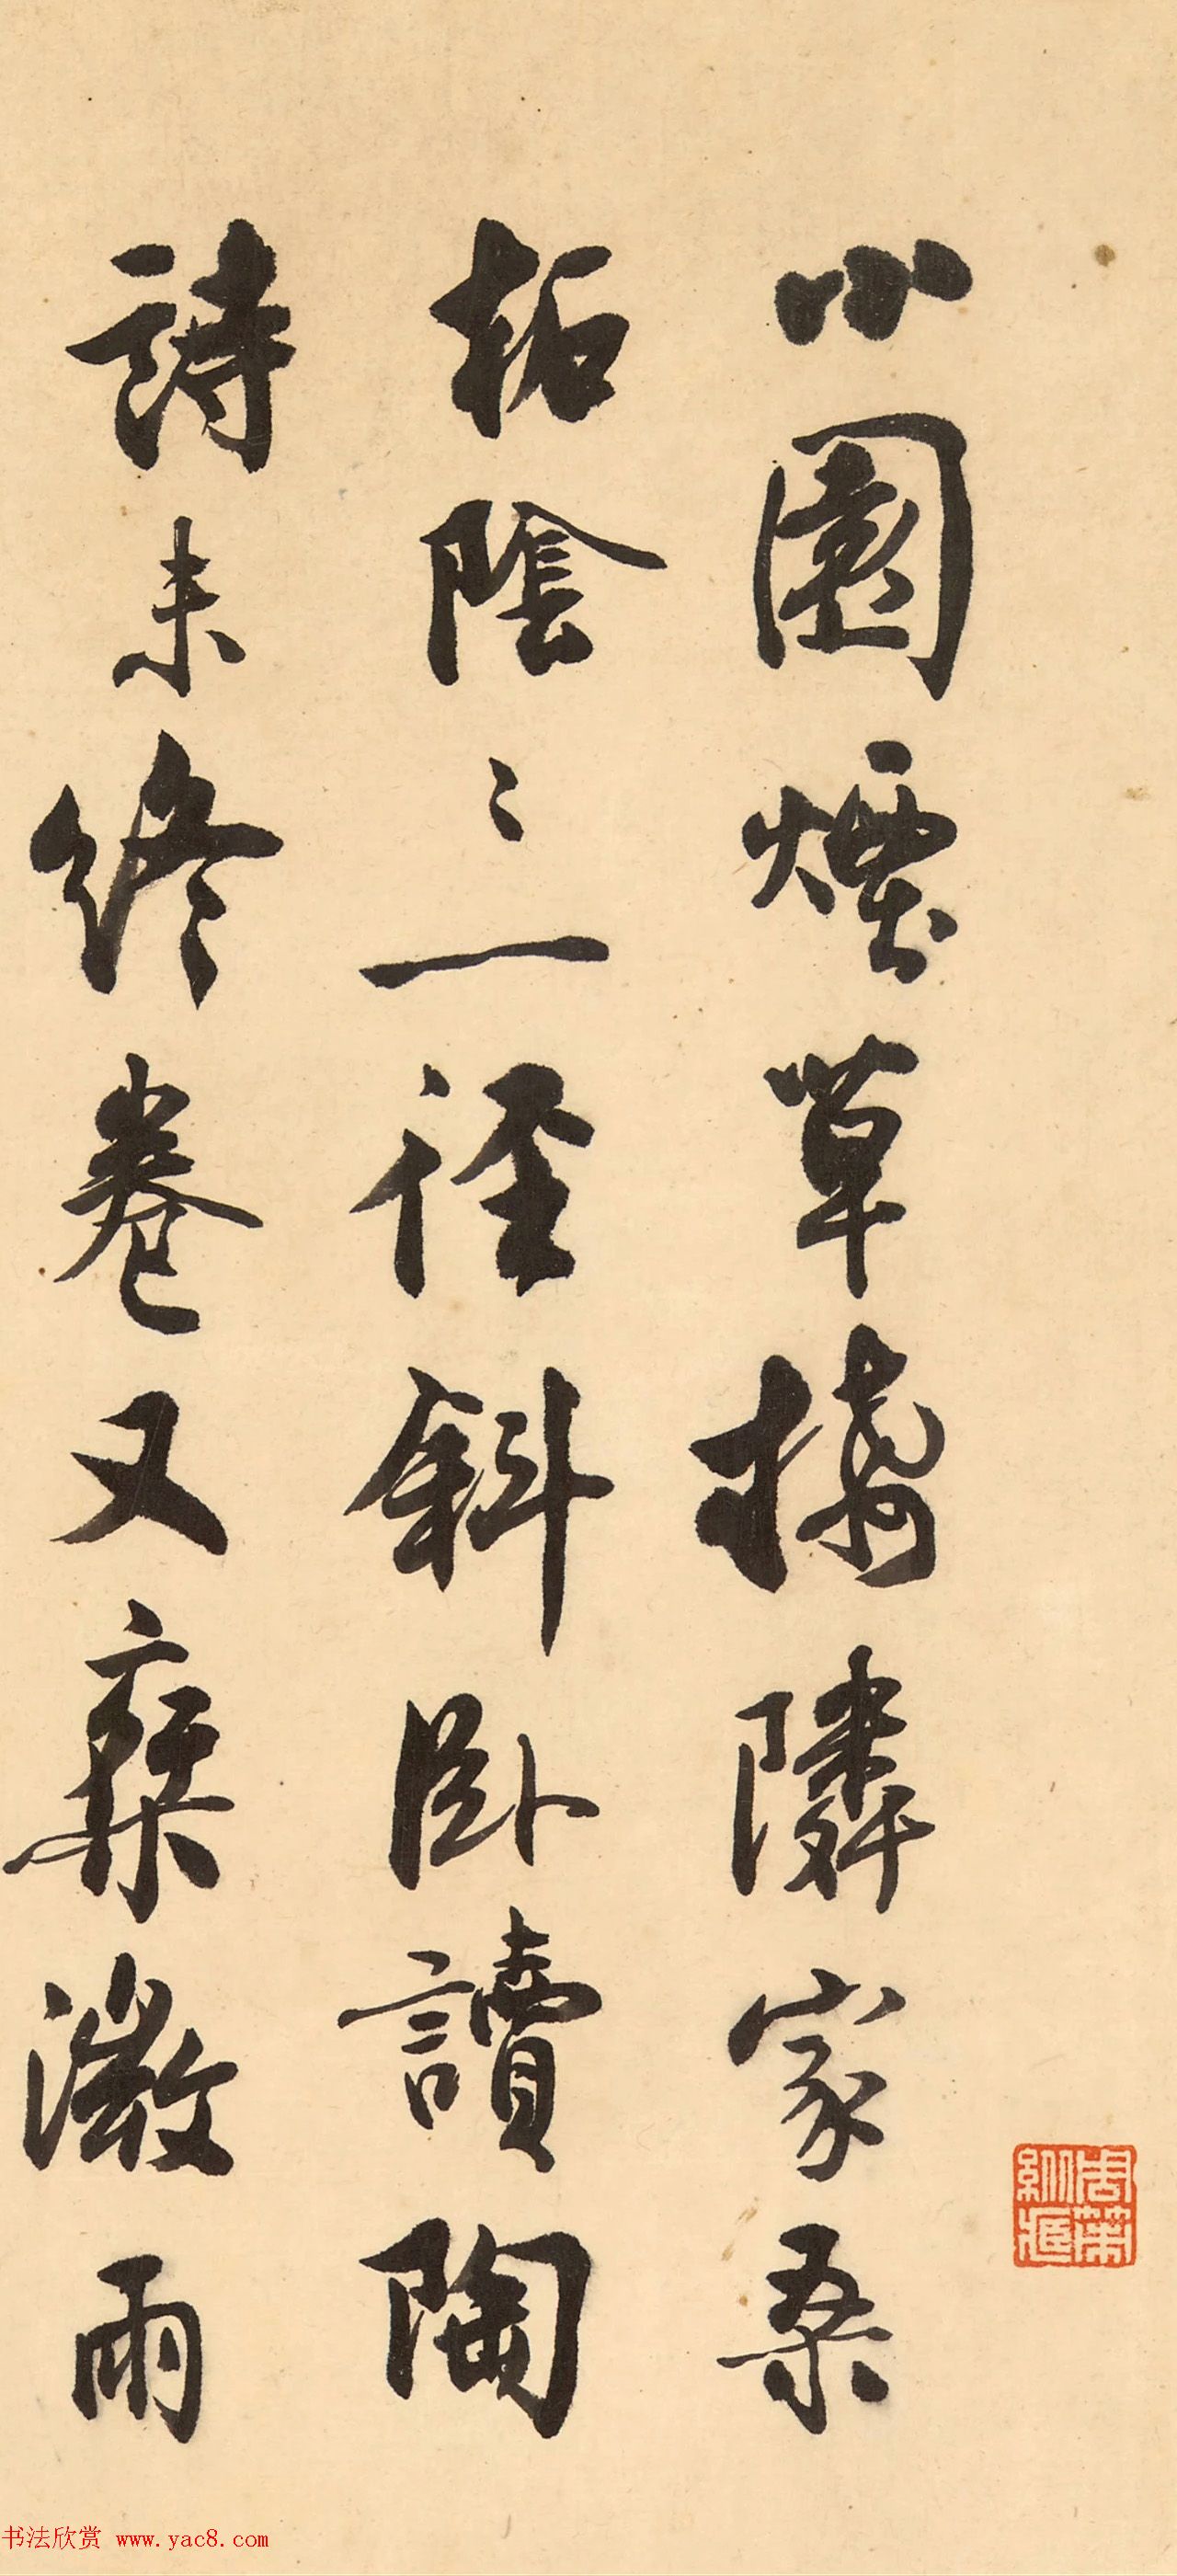 小園煙草隣家桑
柘陰〻一徑斜臥讀陶
詩未終卷又乘溦雨
书法欣赏 www.yac8.com